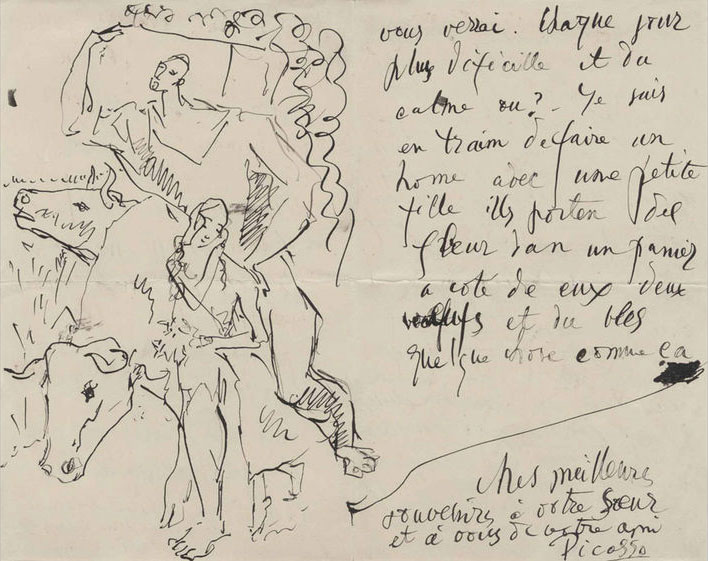 vous verrai. Chaque jour
plus dificille et du
calme ou? Je suis
en traim de faire un
home avec une petite
fille ills porten des
fleur dan un panier
a coté de eux deux
et du bles
quelque chose comme ça
Mes meilleures
souvenirs à votre sœur
et à vous de votre ami
Picasso